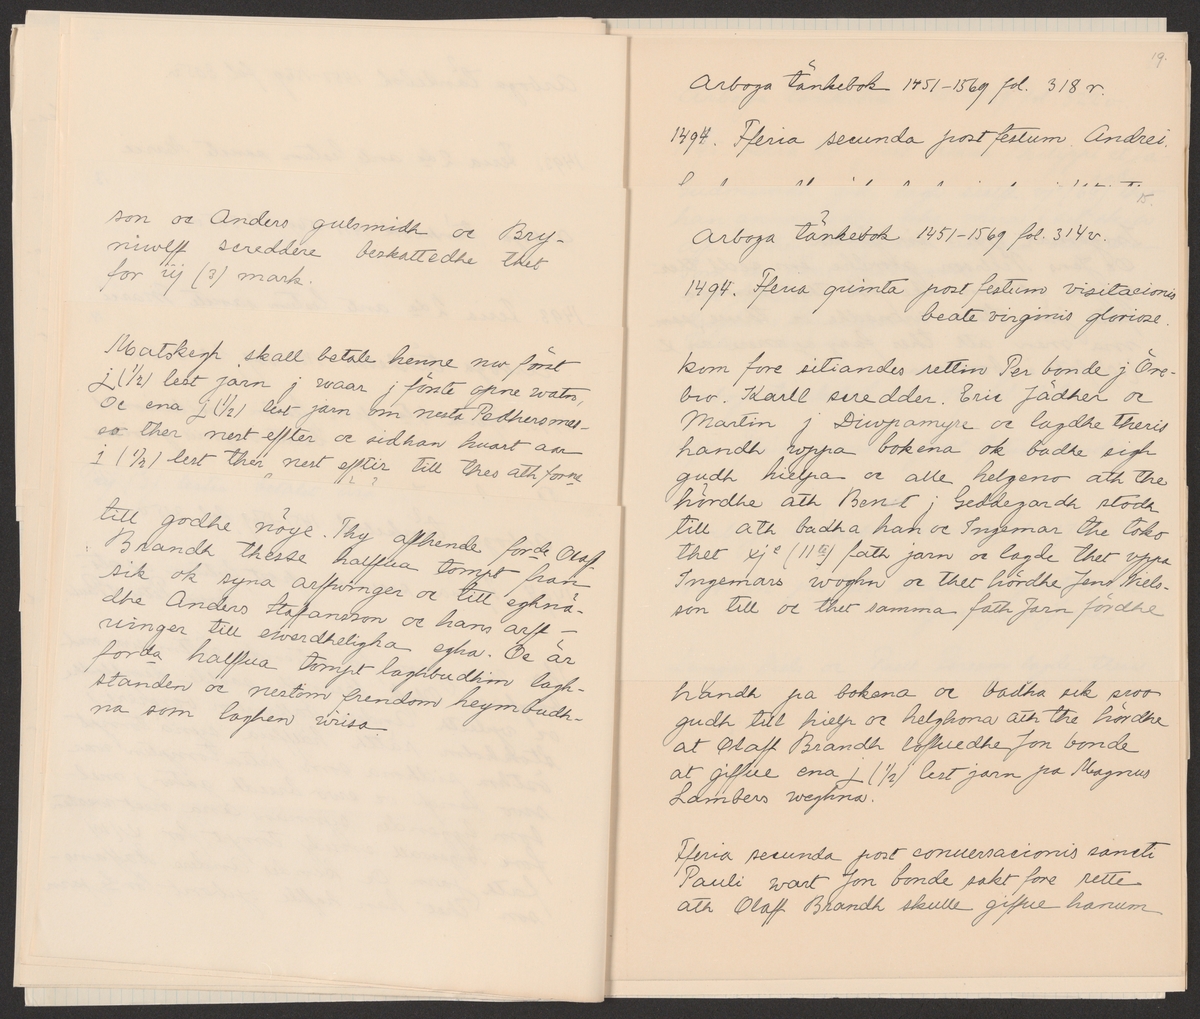 son oc Anders gulsmidh oc Bry-
niwlff screddere beskattedhe thet
for iij (3) mark.
Matskerp skall betale henne nw först
j (1/2) lest jarn j waar j förste opne watn,
Oc ena j (1/2) lest jarn om nesta Pedhersmes-
so ther nest effter oc sidhan huart aar
j (1/2) lest ther nest efftir till thes ath forne
till godhe nöye. Thy affhende forde Olaff
Brandh thesse halffua tompt fran
sik ok syna arffwinger oc till eghnä-
dhe Anders Stafansson oc hans arff-
winger till ewerdheligha egha. Oc är
forda halffua tompt laghbudhin lagh-
standen oc nestom frendom heymbudh-
na som laghen wtisa
19.
Arboga tänkebok 1451-1569 fol. 318 r.
1494. Fferia secunda post festum Andrei.
15.
Arboga tänkebok 1451-1569 fol. 314 v.
1494. Fferia quinta post festum visitacionis
beate virginis gloriose.
kom fore sitiandes rettin Per bonde j Öre-
bro. Karll scredder. Eric Jädher oc
Martin j Diwpamyre oc lagdhe theris
handh wppa bokena ok badhe sigh
gudh hielpa oc alle helgeno ath the
hördhe ath Bent j Geddegardh stodh
till ath badha han oc Ingemar the toko
thet xjc (11te) fath jarn oc lagde thet vppa
Ingemars woghn oc thet hördhe Jens Niels-
son till oc thet samma fath Jarn fördhe
handh pa bokena oc badha sik swo
gudh till hielp oc helghona ath the hördhe
at Olaff Brandh loffuedhe Jon bonde
at giffue ena j (1/2) lest jarn pa Magnus
Lambers weghna.
Fferia secunda post conuersacionis sancti
Pauli wart Jon bonde sakt fore rette
ath Olaff Brandh skulle giffue hanum